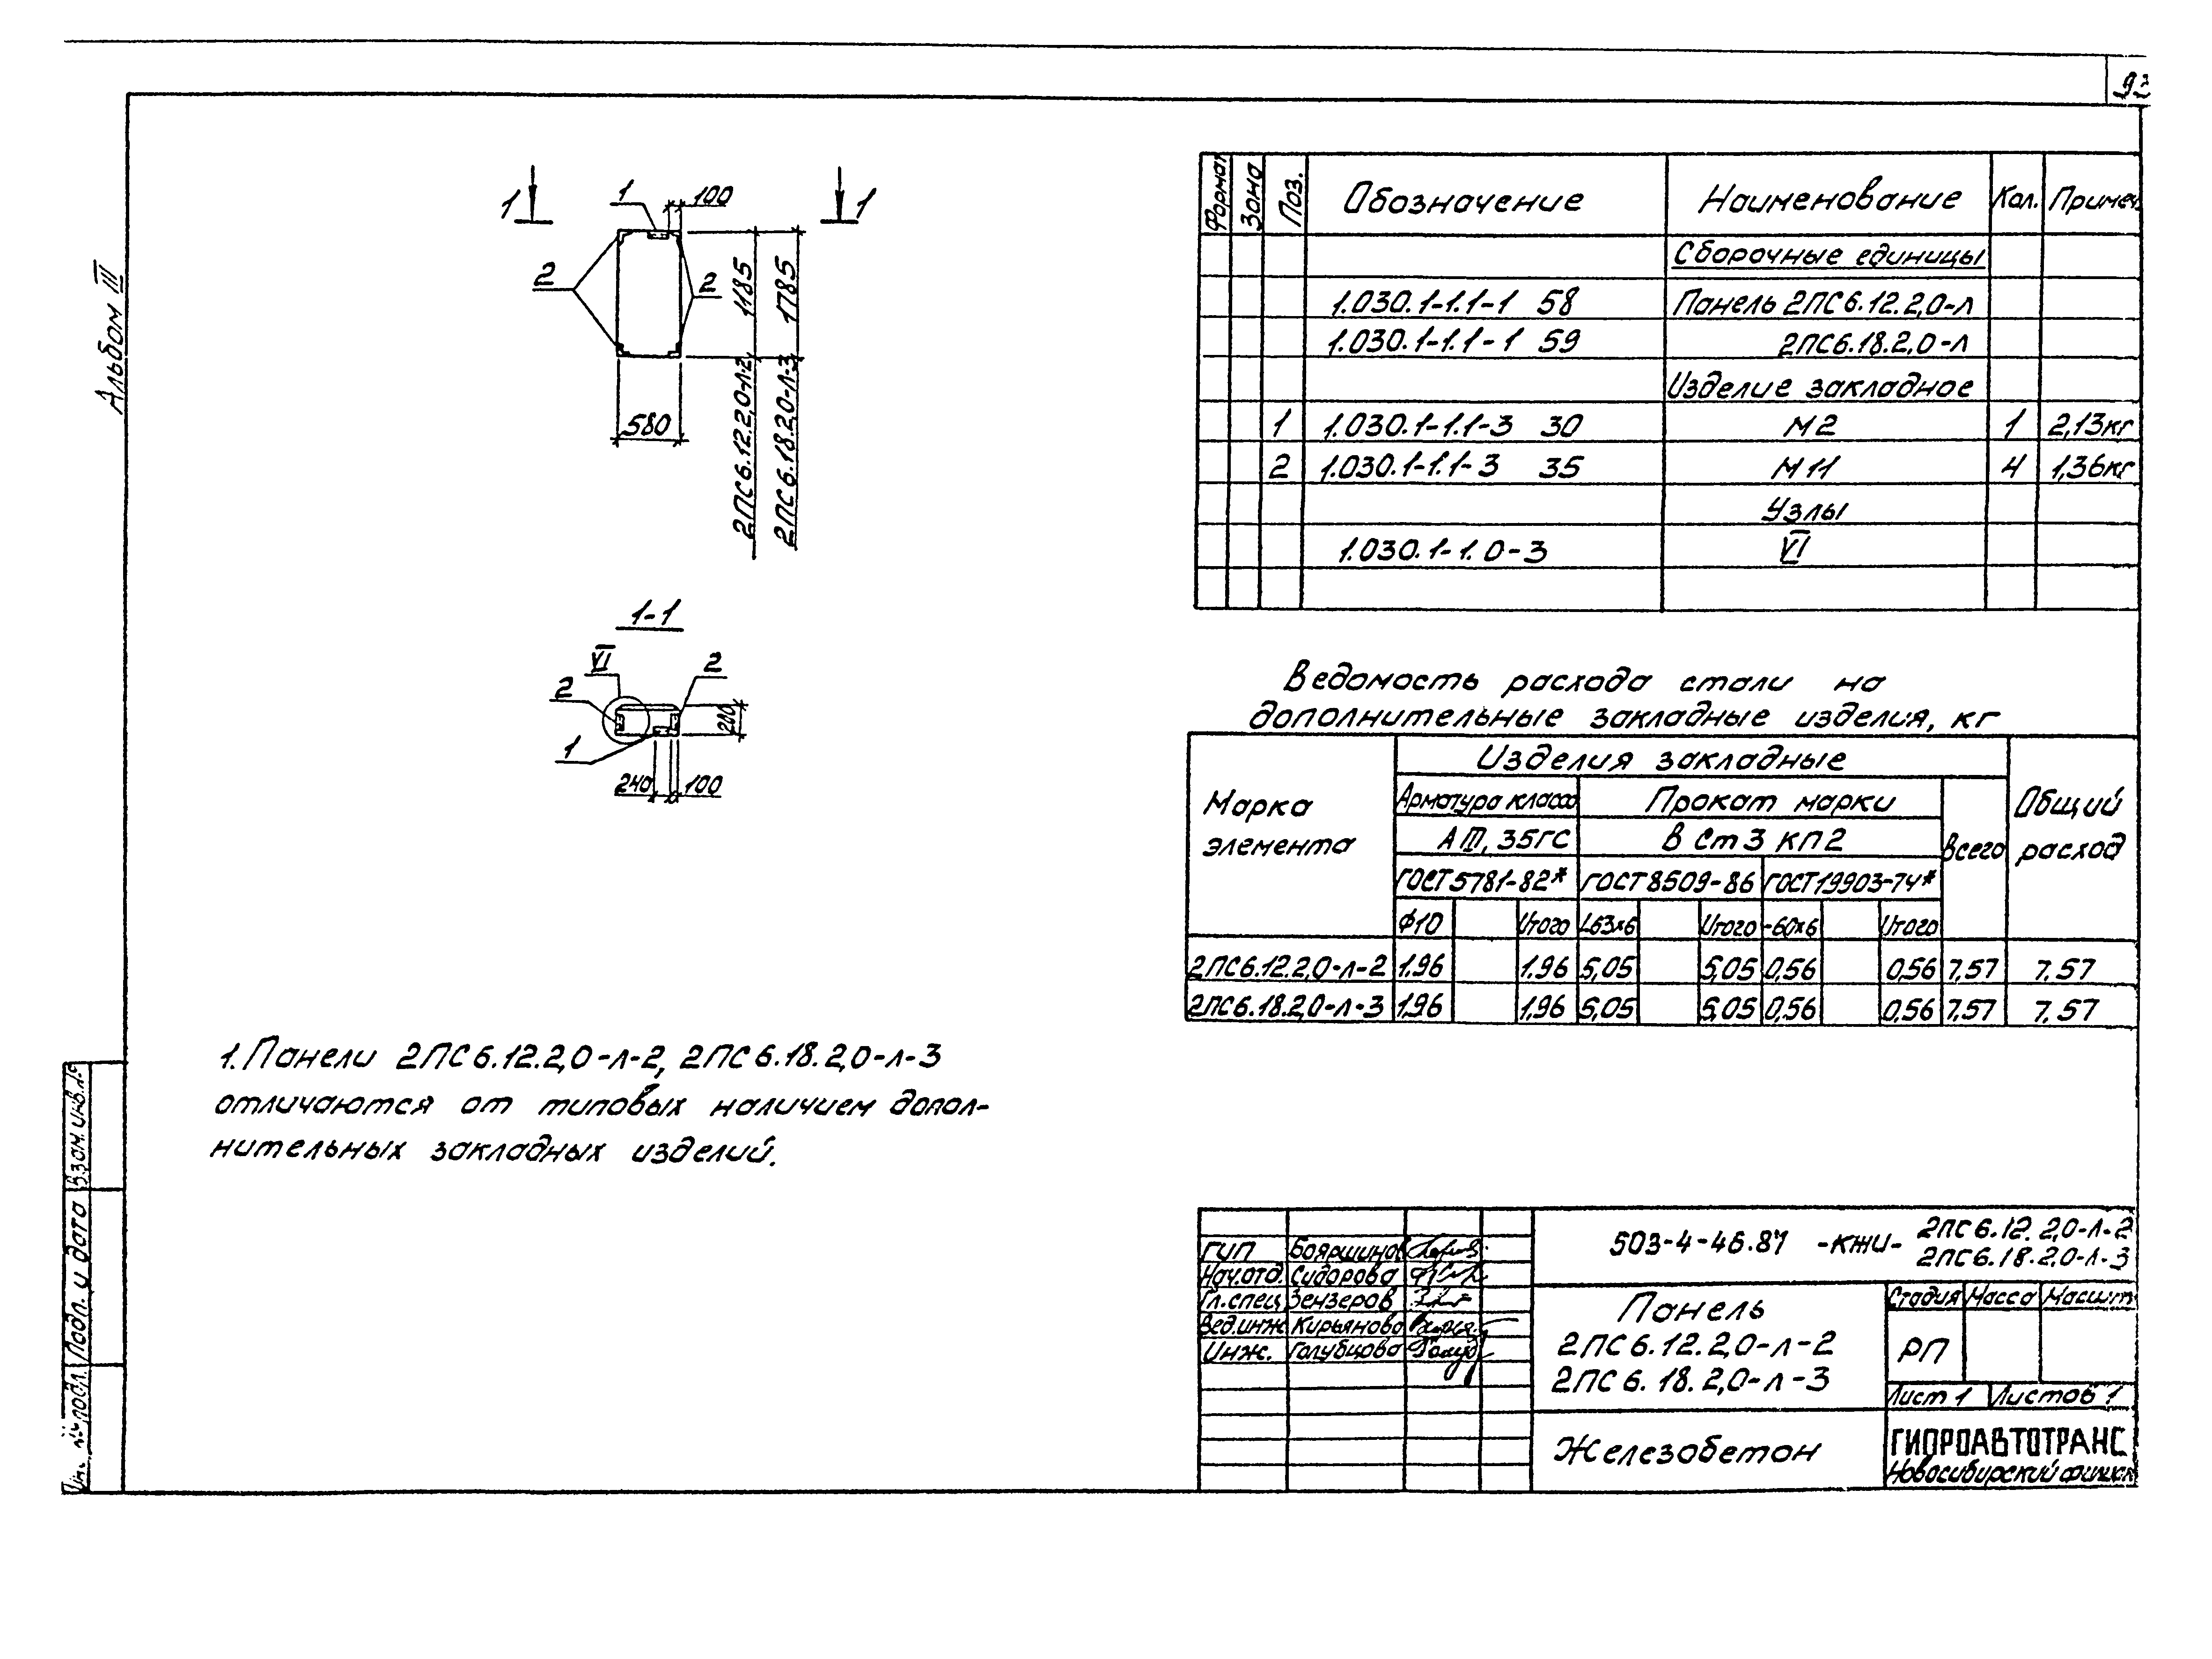 93
Альбом III
1 1
1 100
2 2
1185
1785
2ПС6.12.2,0-л-2
2ПС6.18.2,0-л-3
580
1-1
VI
2 2
1
200
240 100
Формат Зона Поз. Обозначение Наименование Кол. Примеч.
Сборочные единицы
1.030.1-1.1-1 58 Панель 2ПС6.12.2,0-л
1.030.1-1.1-1 59 2ПС6.18.2,0-л
Изделие закладное
1 1.030.1-1.1-3 30 М2 1 2,13кг
2 1.030.1-1.1-3 35 М11 4 1,36кг
Узлы
1.030.1-1.0-3 VI
Ведомость расхода стали на
дополнительные закладные изделия, кг
Марка элемента Изделия закладные Общий расход
Арматура класса Прокат марки Всего
АIII, 35ГС ВСт3кп2
ГОСТ5781-82* ГОСТ8509-86 ГОСТ19903-74*
Ф10 Итого L63х6 Итого -60х6 Итого
2ПС6.12.2,0-л-2 1,96 1,96 5,05 5,05 0,56 0,56 7,57 7,57
2ПС6.18.2,0-л-3 1,96 1,96 5,05 5,05 0,56 0,56 7,57 7,57
1. Панели 2ПС6.12.2,0-л-2, 2ПС6.18.2,0-л-3
отличаются от типовых наличием допол-
нительных закладных изделий.
Взам. инв. №
Подп. и дата
Инв. № подл.
503-4-46.87 -КЖИ- 2ПС6.12.2,0-л-2
2ПС6.18.2,0-л-3
ГИП Бояршинов
Нач.отд. Сидорова
Гл.спец Зензеров
Вед.инж Кирьянова
Инж. Голубцова
Панель
2ПС6.12.2,0-л-2
2ПС6.18.2,0-л-3
Стадия Масса Масшт
РП
Лист 1 Листов 1
Железобетон
ГИПРОАВТОТРАНС
Новосибирский филиал